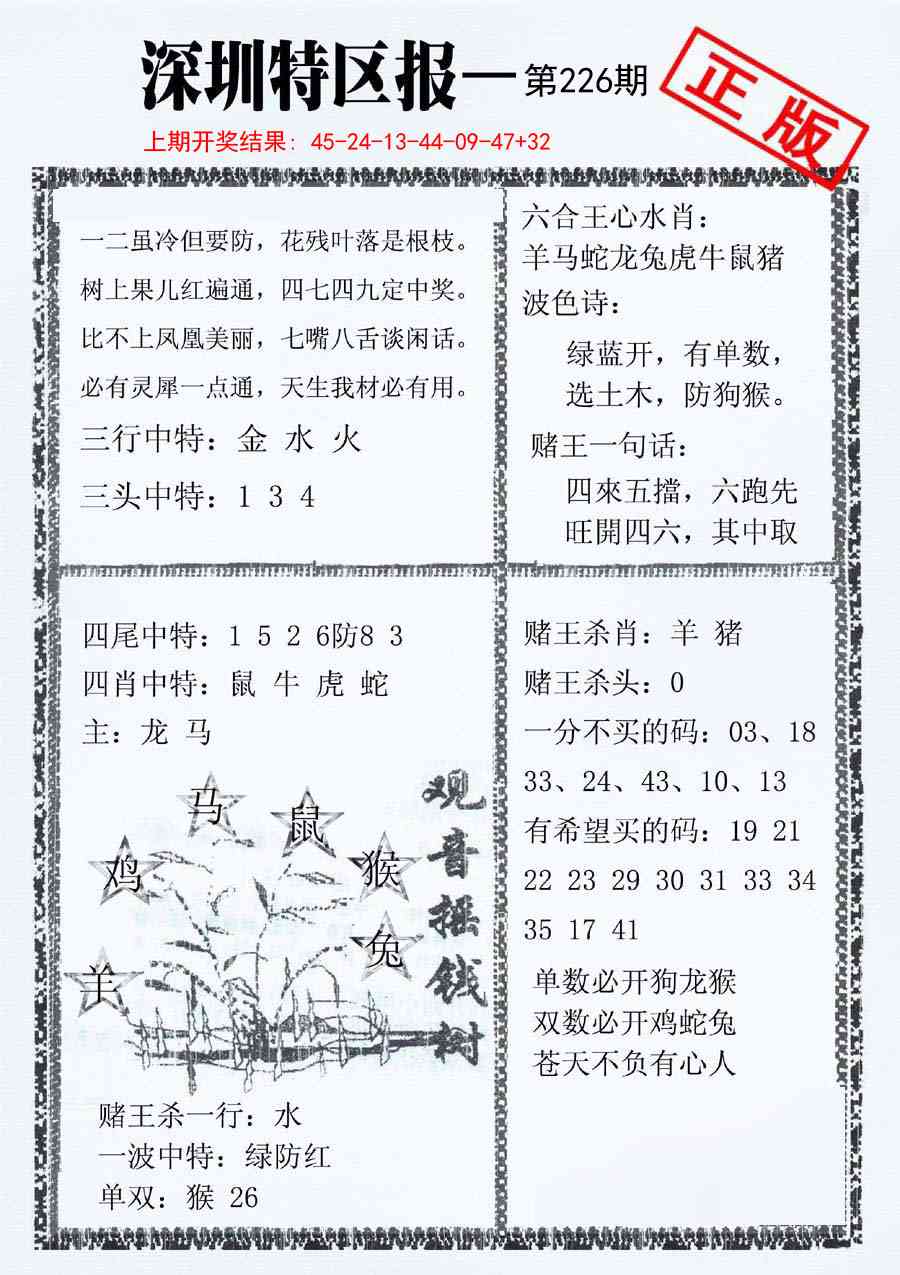 深圳特区报—第226期
正版
上期开奖结果：45-24-13-44-09-47+32
一二虽冷但要防，花残叶落是根枝。
树上果儿红遍通，四七四九定中奖。
比不上凤凰美丽，七嘴八舌谈闲话。
必有灵犀一点通，天生我材必有用。
三行中特：金 水 火
三头中特：1 3 4
六合王心水肖：
羊马蛇龙兔虎牛鼠猪
波色诗：
绿蓝开，有单数，
选土木，防狗猴。
赌王一句话：
四來五擋，六跑先
旺開四六，其中取
四尾中特：1 5 2 6防8 3
四肖中特：鼠 牛 虎 蛇
主：龙 马
马
鼠
鸡
猴
兔
羊
观音摇钱树
赌王杀一行：水
一波中特：绿防红
单双：猴 26
赌王杀肖：羊 猪
赌王杀头：0
一分不买的码：03、18
33、24、43、10、13
有希望买的码：19 21
22 23 29 30 31 33 34
35 17 41
单数必开狗龙猴
双数必开鸡蛇兔
苍天不负有心人